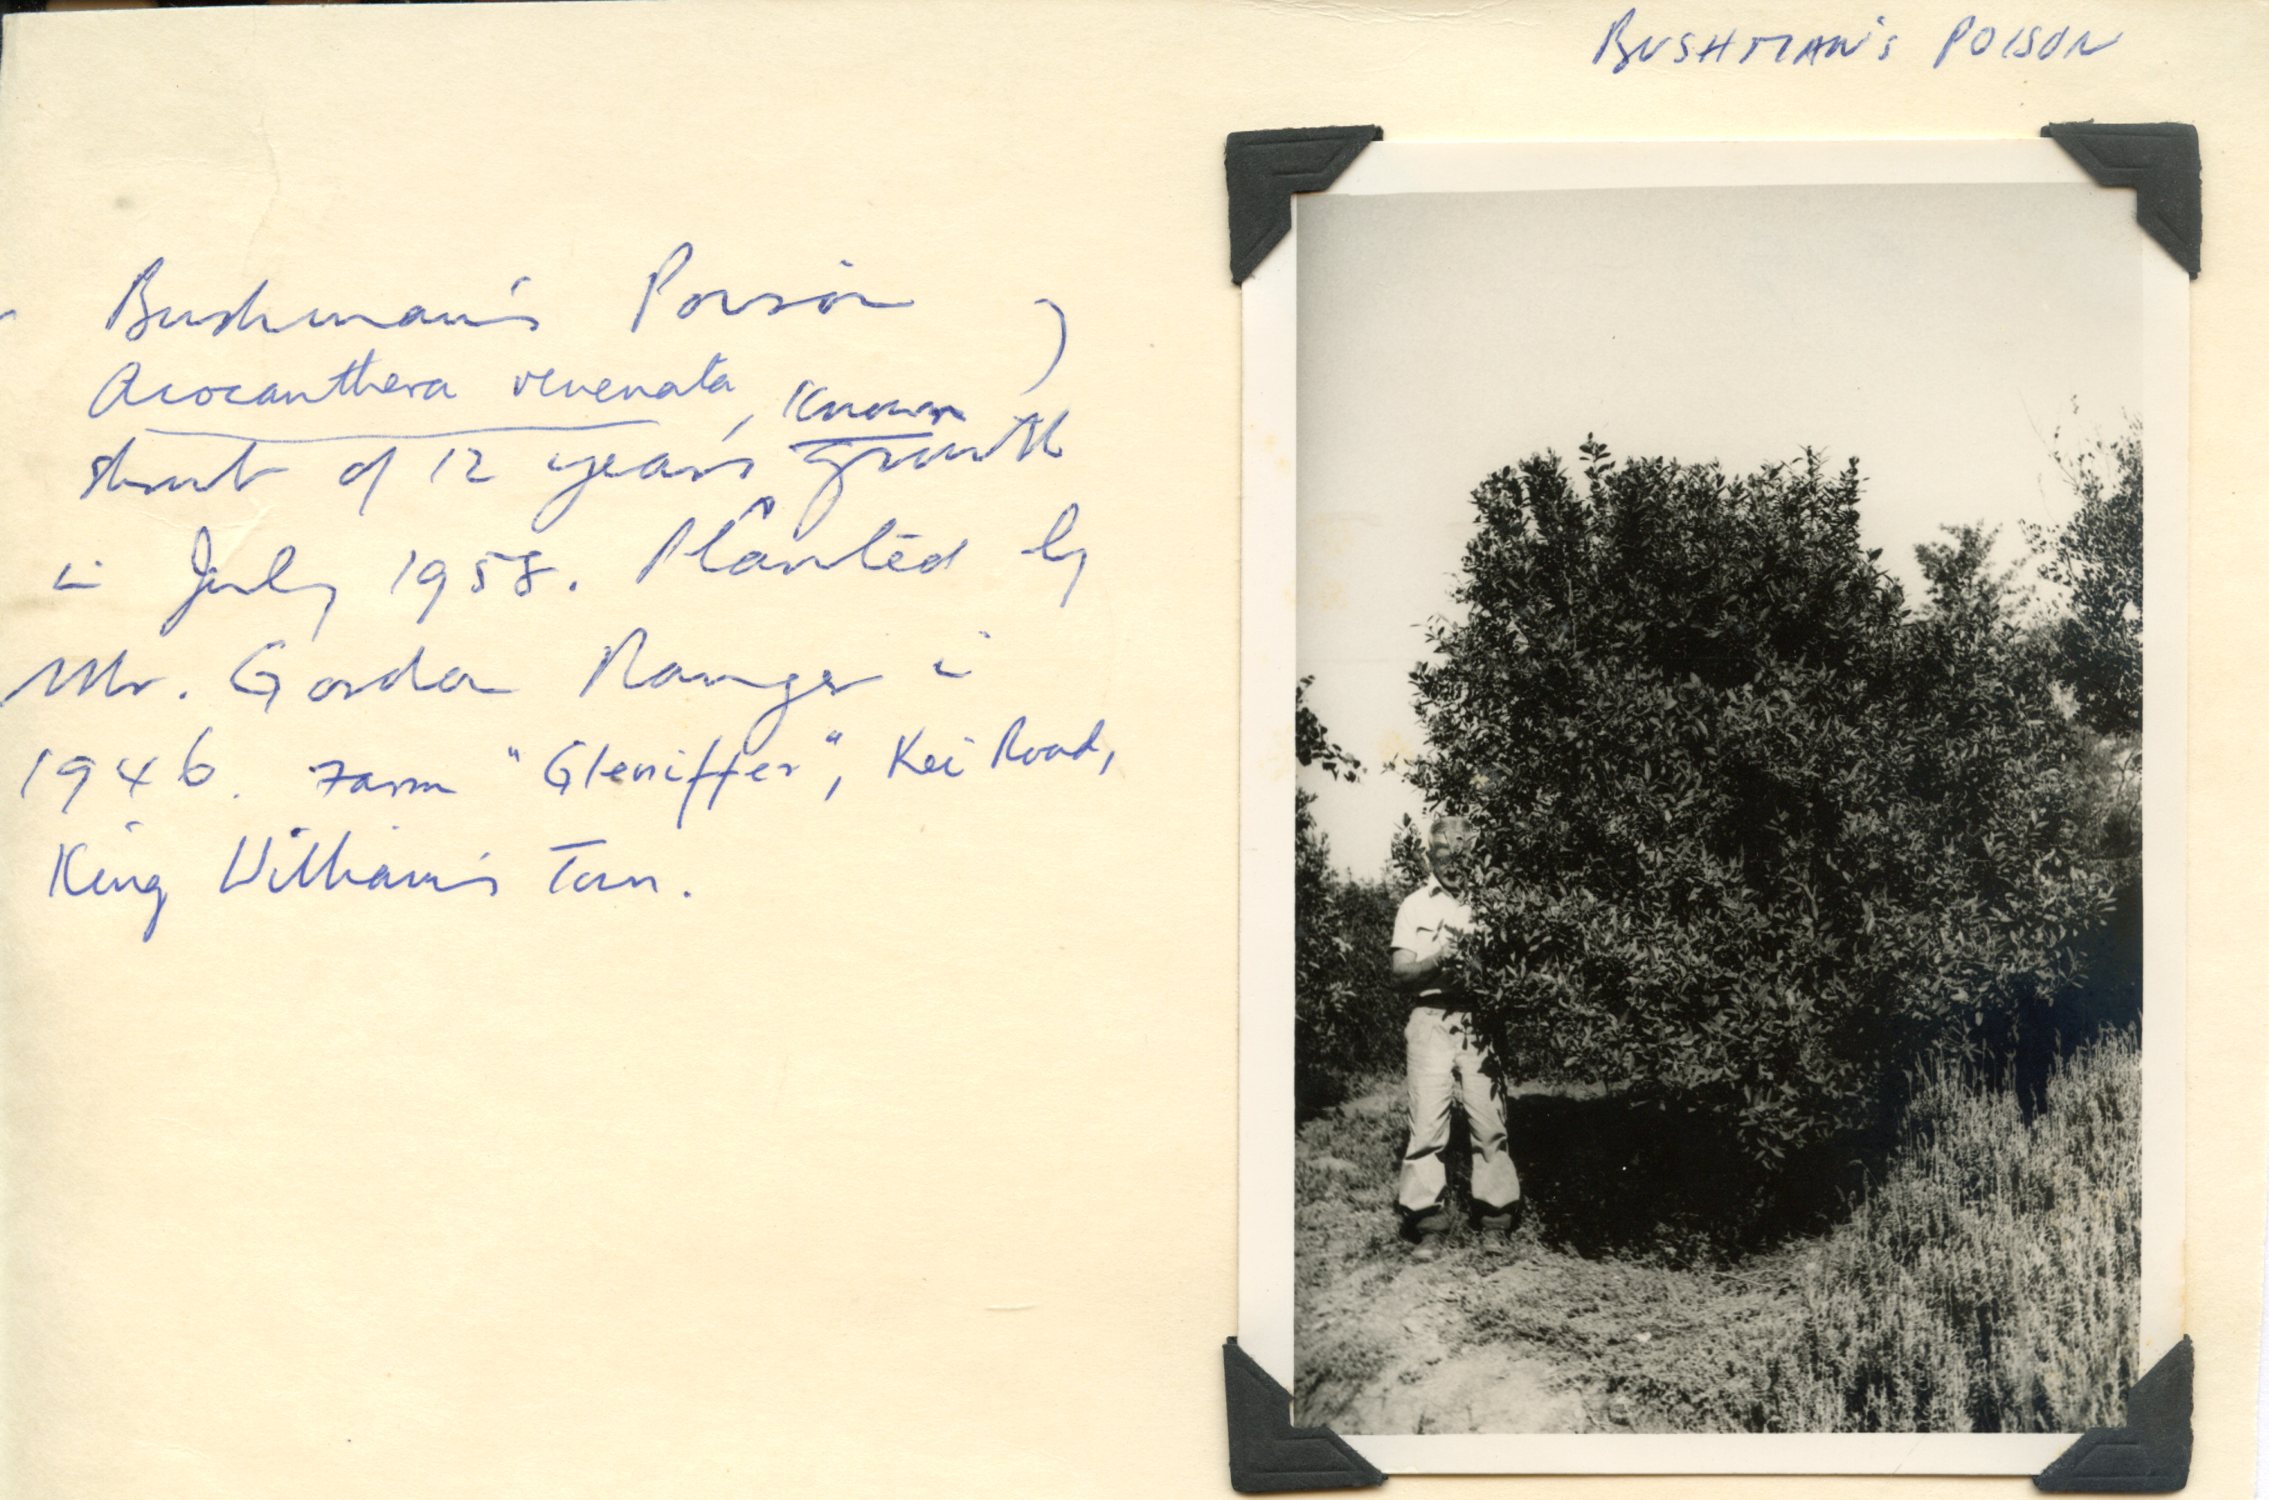 BUSHMAN's POISON
Bushman's Poison
Acocanthera venenata, known
shrub of 12 years growth
in July 1958. Planted by
Mr. Gordon Ranger in
1946. Farm "Gleniffer", Kei Road,
King William's Town.